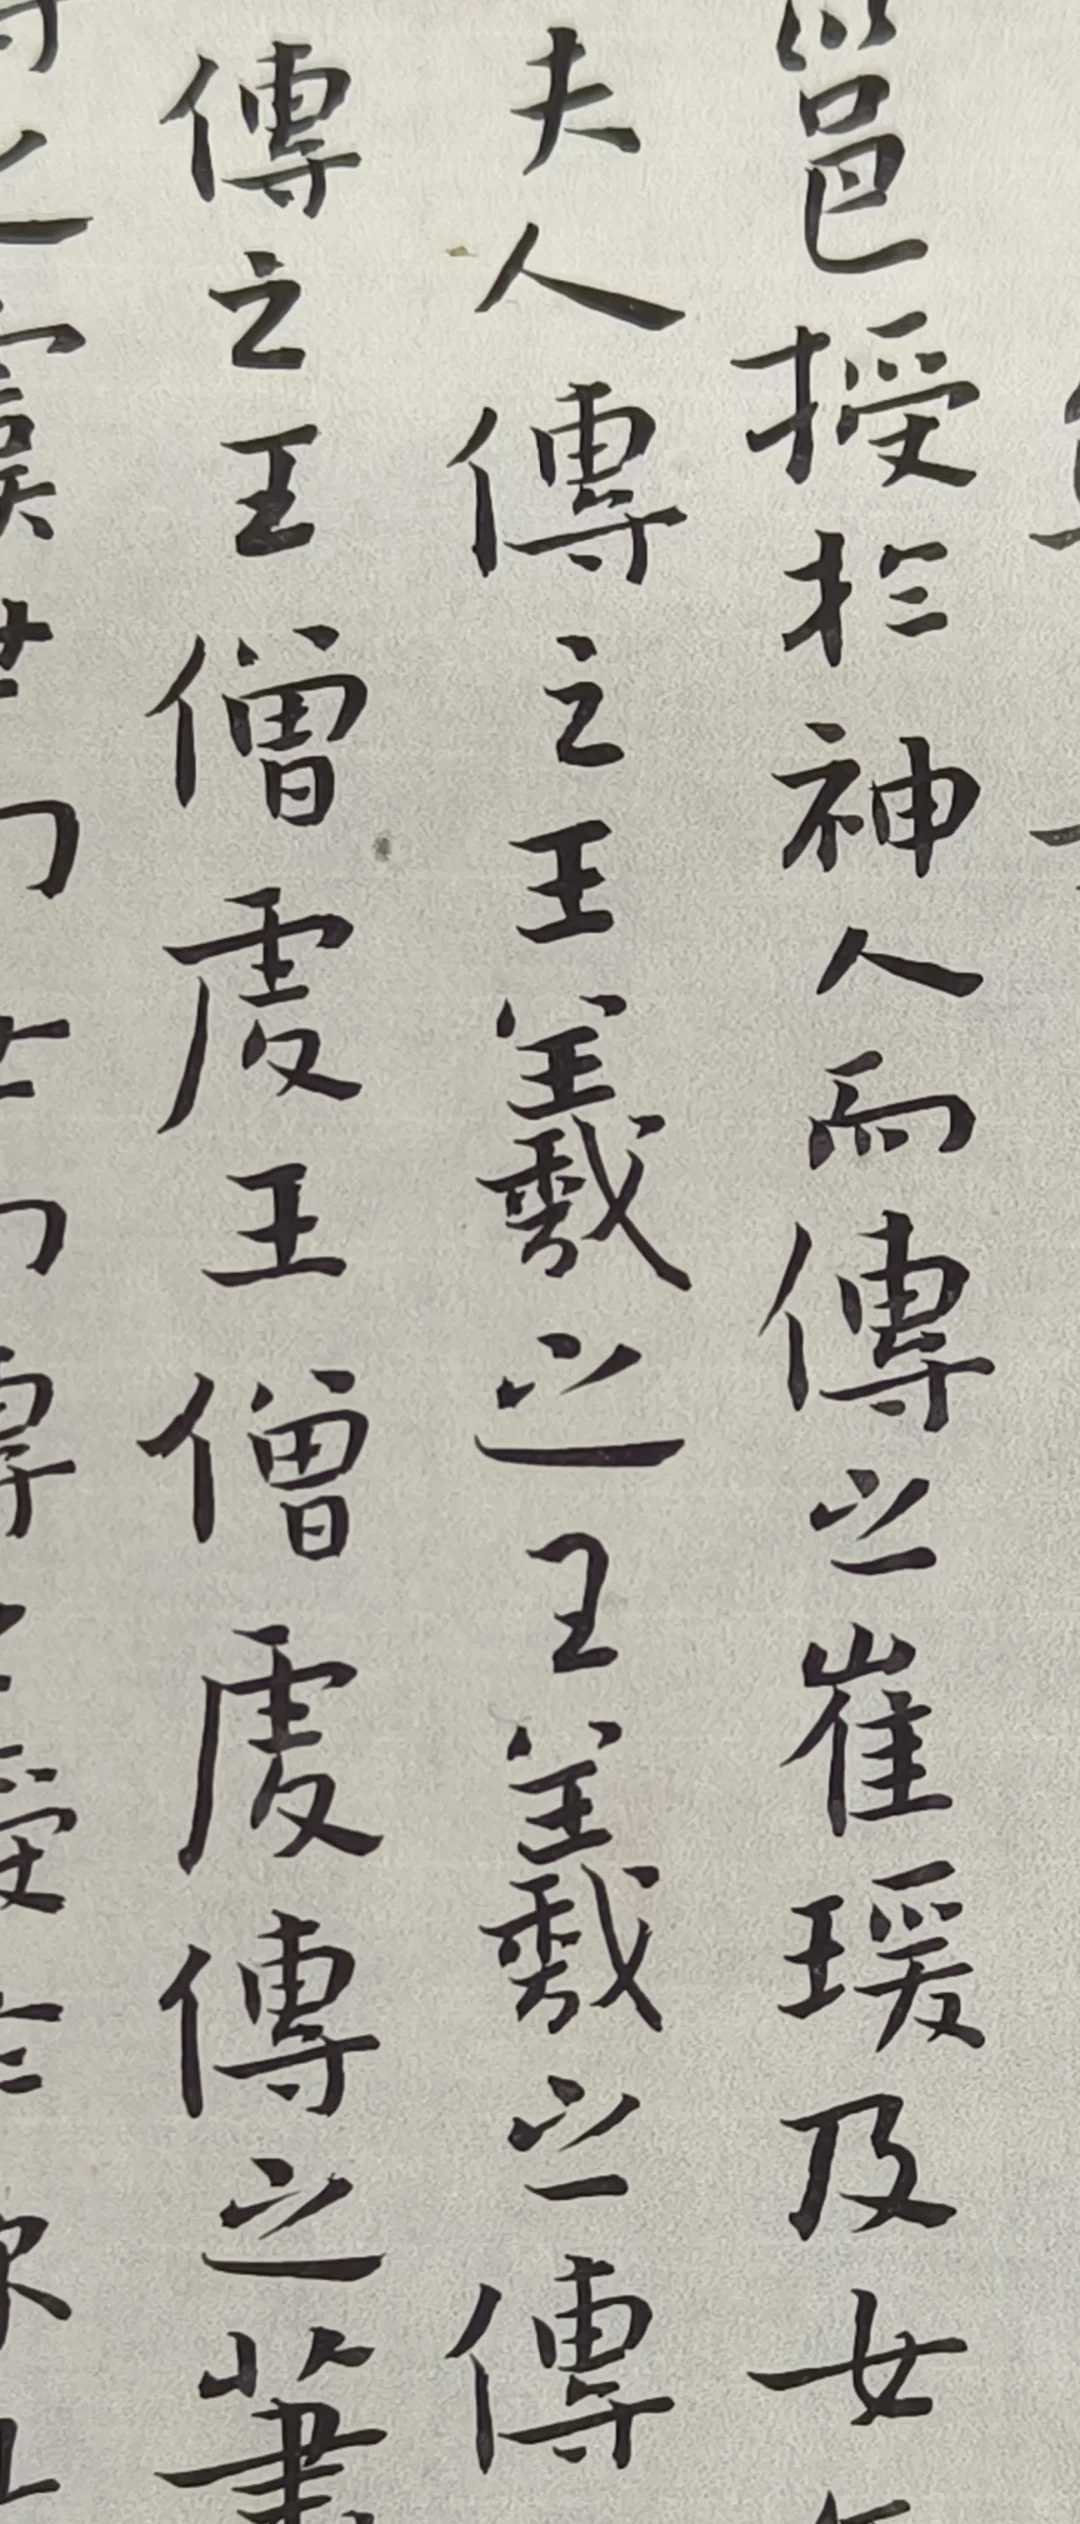 邕授於神人而傳之崔瑗及女
夫人傳之王羲之王羲之傳
傳之王僧虔王僧虔傳之蕭